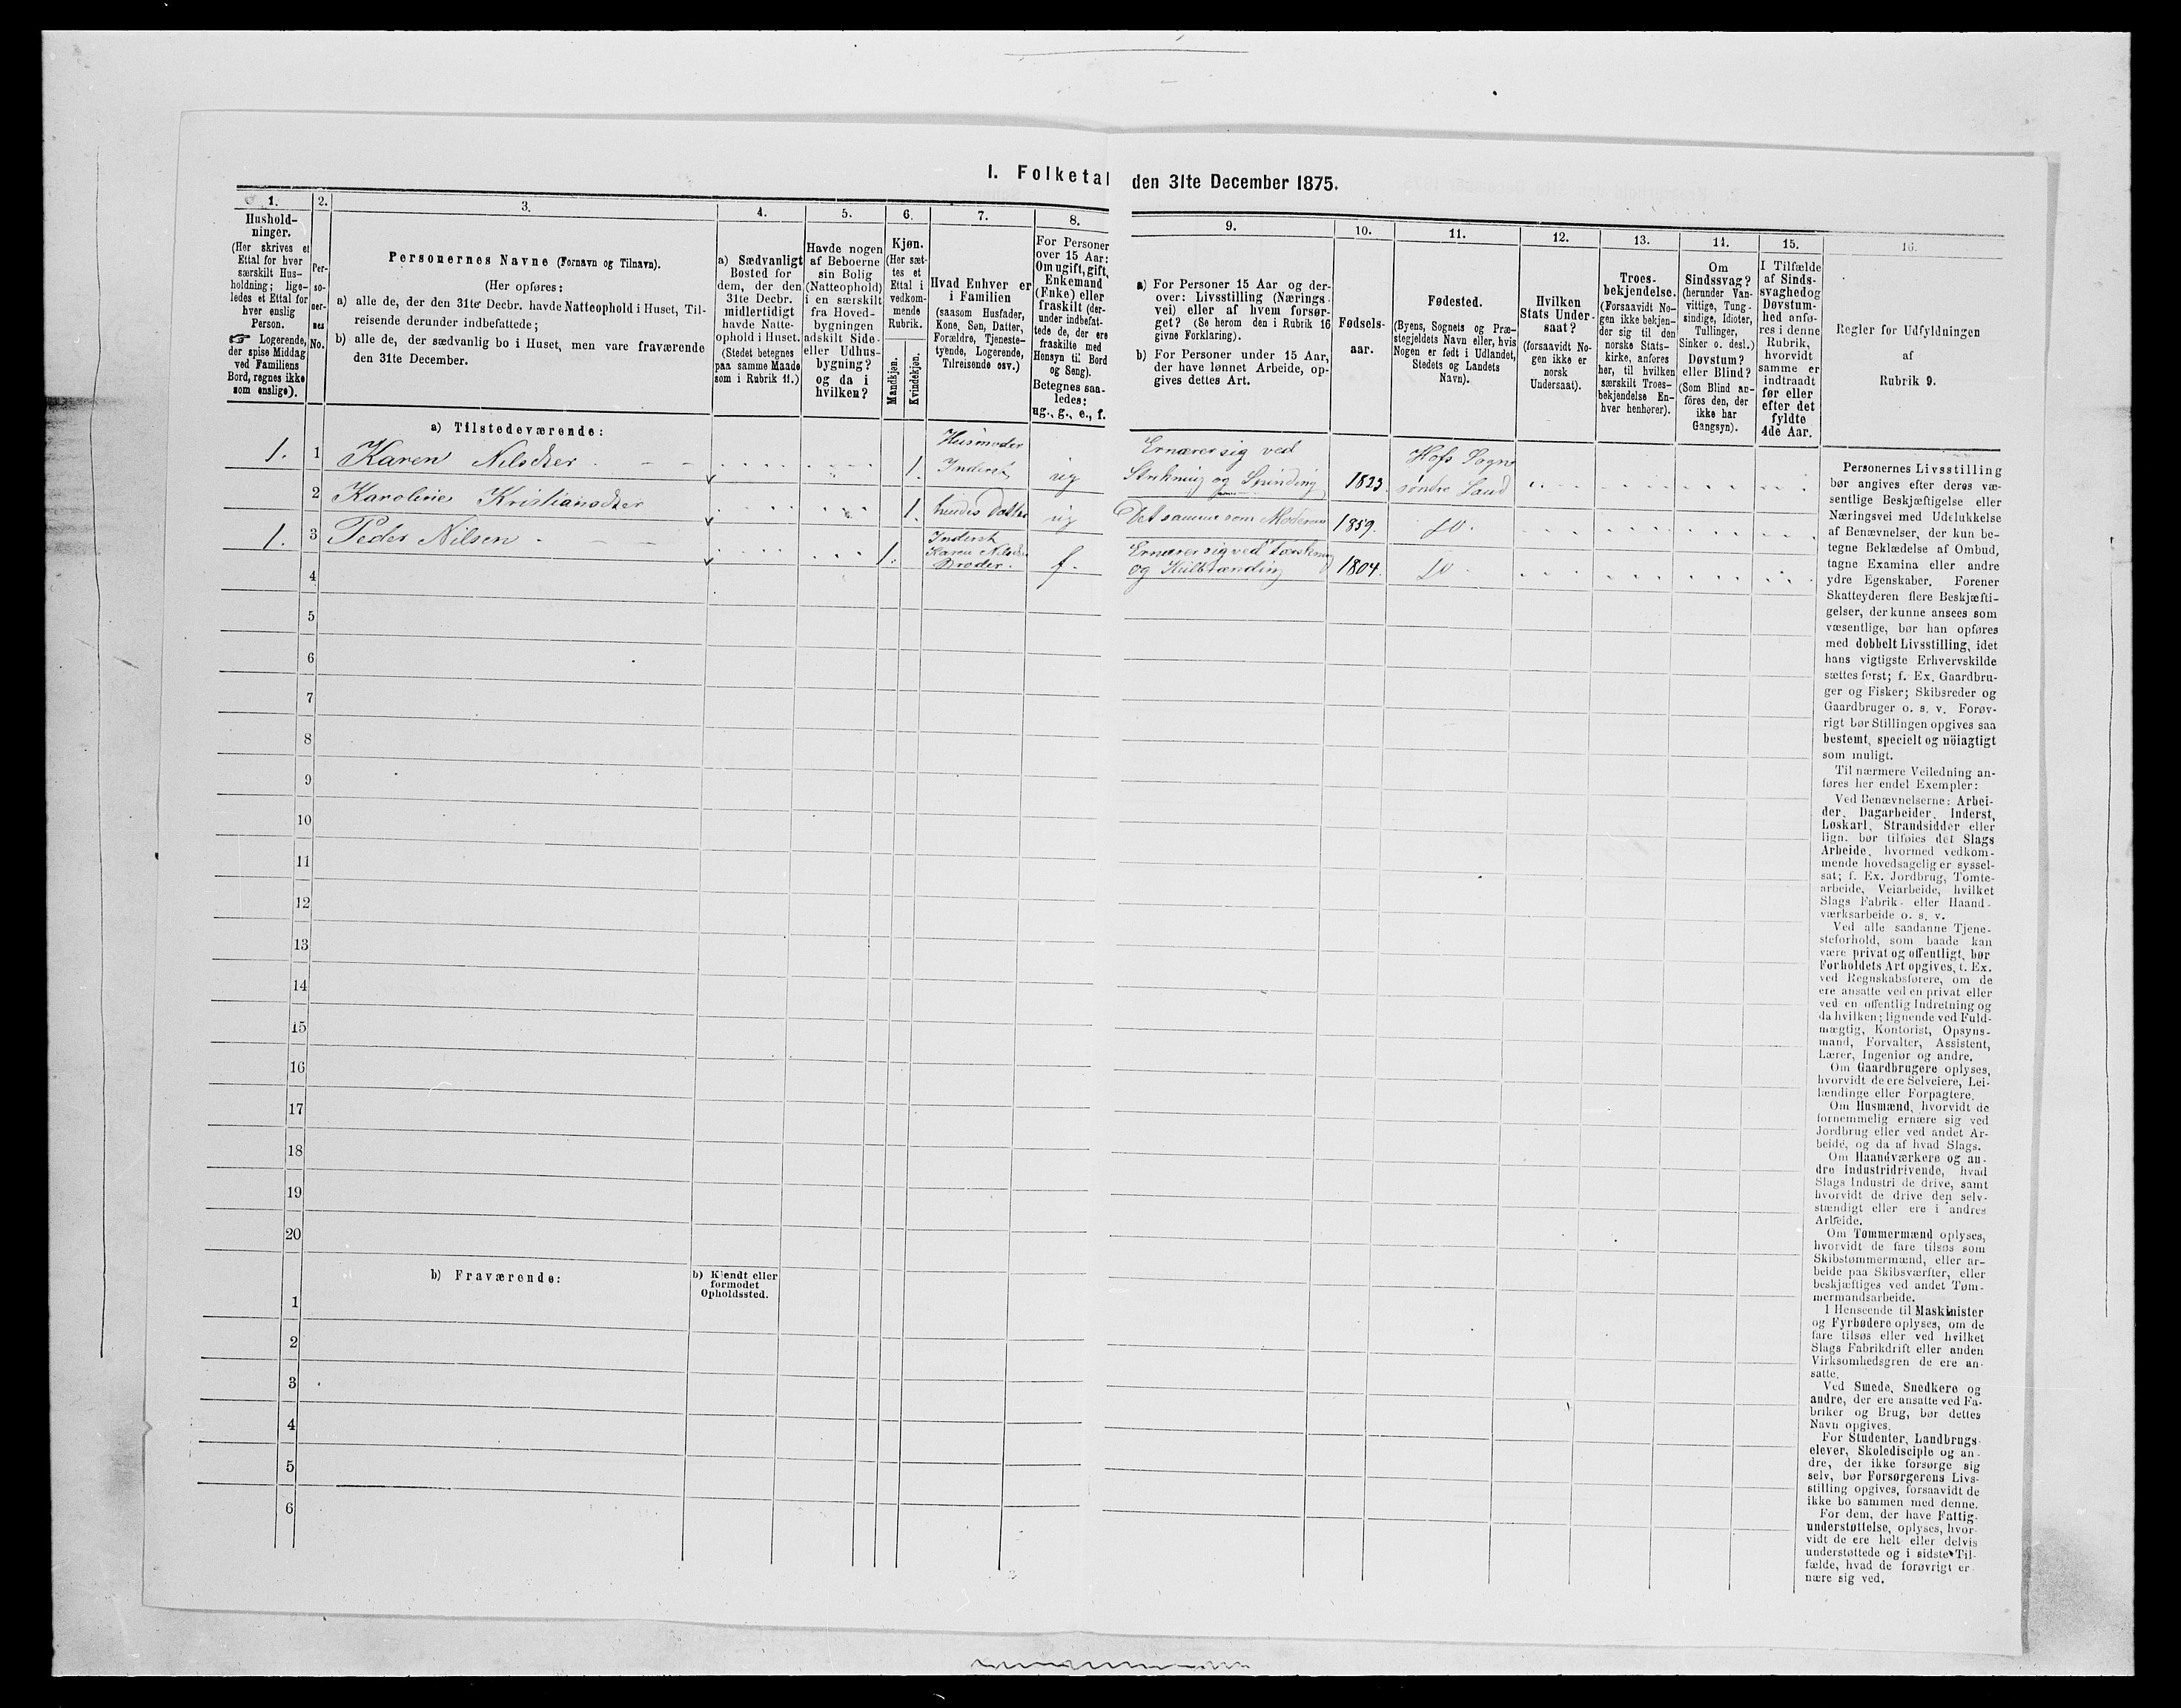 I. Folketal den 31te December 1875.
1.
Hushold-
ninger.
(Her skrives et
Ettal for hver
særskilt Hus-
holdning; lige-
ledes et Ettal for
hver enslig
Person.
☞ Logerende,
der spise Middag
ved Familiens
Bord, regnes ikke
som enslige).
2.
Per-
so-
ner-
nes
No.
3.
Personernes Navne (Fornavn og Tilnavn).
(Her opføres:
a) alle de, der den 31te Decbr. havde Natteophold i Huset, Til-
reisende derunder indbefattede;
b) alle de, der sædvanlig bo i Huset, men vare fraværende
den 31te December.
4.
a) Sædvanligt
Bosted for
dem, der den
31te Decbr.
midlertidigt
havde Natte-
ophold i Huset.
(Stedet betegnes
paa samme Maade
som i Rubrik 11.)
5.
Havde nogen
af Beboerne
sin Bolig
(Natteophold)
i en særskilt
fra Hoved-
bygningen
adskilt Side-
eller Udhus-
bygning?
og da i
hvilken?
6.
Kjøn.
(Her sæt-
tes et
Ettal i
vedkom-
mende
Rubrik.
Mandkjøn.
Kvindekjøn.
7.
Hvad Enhver er
i Familien
(saasom Husfader,
Kone, Søn, Datter,
Forældre, Tjeneste-
tyende, Logerende,
Tilreisende osv.)
8.
For Personer
over 15 Aar:
Om ugift, gift,
Enkemand
(Enke) eller
fraskilt (der-
under indbefat-
tede de, der ere
fraskilte med
Hensyn til Bord
og Seng).
Betegnes saa-
ledes:
ug., g., e., f.
9.
a) For Personer 15 Aar og der-
over: Livsstilling (Nærings-
vei) eller af hvem forsør-
get? (Se herom den i Rubrik 16
givne Forklaring).
b) For Personer under 15 Aar,
der have lønnet Arbeide, op-
gives dettes Art.
10.
Fødsels-
aar.
11.
Fødested.
(Byens, Sognets og Præ-
stegjeldets Navn eller, hvis
Nogen er født i Udlandet,
Stedets og Landets
Navn).
12.
Hvilken
Stats Under-
saat?
(forsaavidt No-
gen ikke er
norsk
Undersaat).
13.
Troes-
bekjendelse.
(Forsaavidt No-
gen ikke bekjen-
der sig til den
norske Stats-
kirke, anføres
her, til hvilken
særskilt Troes-
bekjendelse En-
hver henhører).
14.
Om
Sindssvag?
(herunder Van-
vittige, Tung-
sindige, Idioter,
Tullinger,
Sinker o. desl.)
Døvstum?
eller Blind?
(Som Blind an-
føres den, der
ikke har
Gangsyn).
15.
I Tilfælde
af Sinds-
svaghedog
Døvstum-
hed anfø-
res i denne
Rubrik,
hvorvidt
samme er
indtraadt
før eller
efter det
fyldte
4de Aar.
16.
Regler for Udfyldningen
af
Rubrik 9.
a) Tilstedeværende:
1. 1 Karen Nilsdter 1. Husmoder Inderst ug Ernærer sig ved Strikning og Spinding 1823. Hofs Sogn søndre Land
2 Karoline Kristiansdter 1. hendes Datter ug Det samme som Moderen 1859. do
1. 3 Peder Nilsen 1. Inderst Karen Nilsdter Broder. f. Ernærer sig ved Tærskning og 1804. do
4
5
6
7
8
9
10
11
12
13
14
15
16
17
18
19
20
b) Fraværende:
b) Kjendt eller
formodet
Opholdssted.
1
2
3
4
5
6
Personernes Livsstilling
bør angives efter deres væ-
sentlige Beskjæftigelse eller
Næringsvei med Udelukkelse
af Benævnelser, der kun be-
tegne Beklædelse af Ombud,
tagne Examina eller andre
ydre Egenskaber. Forener
Skatteyderen flere Beskjæfti-
gelser, der kunne ansees som
væsentlige, bør han opføres
med dobbelt Livsstilling, idet
hans vigtigste Erhvervskilde
sættes først; f. Ex. Gaardbru-
ger og Fisker; Skibsreder og
Gaardbruger o. s. v. Forøv-
rigt bør Stillingen opgives saa
bestemt, specielt og nöiagtigt
som muligt.
Til nærmere Veiledning an-
føres her endel Exempler:
Ved Benævnelserne: Arbei-
der, Dagarbeider, Inderst,
Løskarl, Strandsidder eller
lign. bør tilføies det Slags
Arbeide, hvormed vedkom-
mende hovedsagelig er syssel-
sat; f. Ex. Jordbrug, Tomte-
arbeide, Veiarbeide, hvilket
Slags Fabrik- eller Haand-
værksarbeide o. s. v.
Ved alle saadanne Tjene-
steforhold, som baade kan
være privat og offentligt, bør
Forholdets Art opgives, t. Ex.
ved Regnskabsførere, om de
ere ansatte ved en privat eller
ved en offentlig Indretning og
da hvilken; lignende ved Fuld-
mægtig, Kontorist, Opsyns-
mand, Forvalter, Assistent,
Lærer, Ingeniør og andre.
Om Gaardbrugere oplyses,
hvorvidt de ere Selveiere, Lei-
lændinge eller Forpagtere.
Om Husmænd, hvorvidt de
fornemmelig ernære sig ved
Jordbrug eller ved andet Ar-
beide, og da af hvad Slags.
Om Haandværkere og an-
dre Industridrivende, hvad
Slags Industri de drive, samt
hvorvidt de drive den selv-
stændigt eller ere i andres
Arbeide.
Om Tømmermænd oplyses,
hvorvidt de fare tilsøs som
Skibstømmermænd, eller ar-
beide paa Skibsværfter, eller
beskjæftiges ved andet Tøm-
mermandsarbeide.
I Henseende til Maskinister
og Fyrbødere oplyses, om de
fare tilsøs eller ved hvilket
Slags Fabrikdrift eller anden
Virksomhedsgren de ere an-
satte.
Ved Smede, Snedkere og
andre, der ere ansatte ved Fa-
briker og Brug, bør dettes
Navn opgives.
For Studenter, Landbrugs-
elever, Skoledisciple og an-
dre, der ikke forsørge sig
selv, bør Forsørgerens Livs-
stilling opgives, forsaavidt de
ikke bo sammen med denne.
For dem, der have Fattig-
understøttelse, oplyses, hvor-
vidt de ere helt eller delvis
understøttede og i sidste Til-
fælde, hvad de forøvrigt er-
nære sig ved.